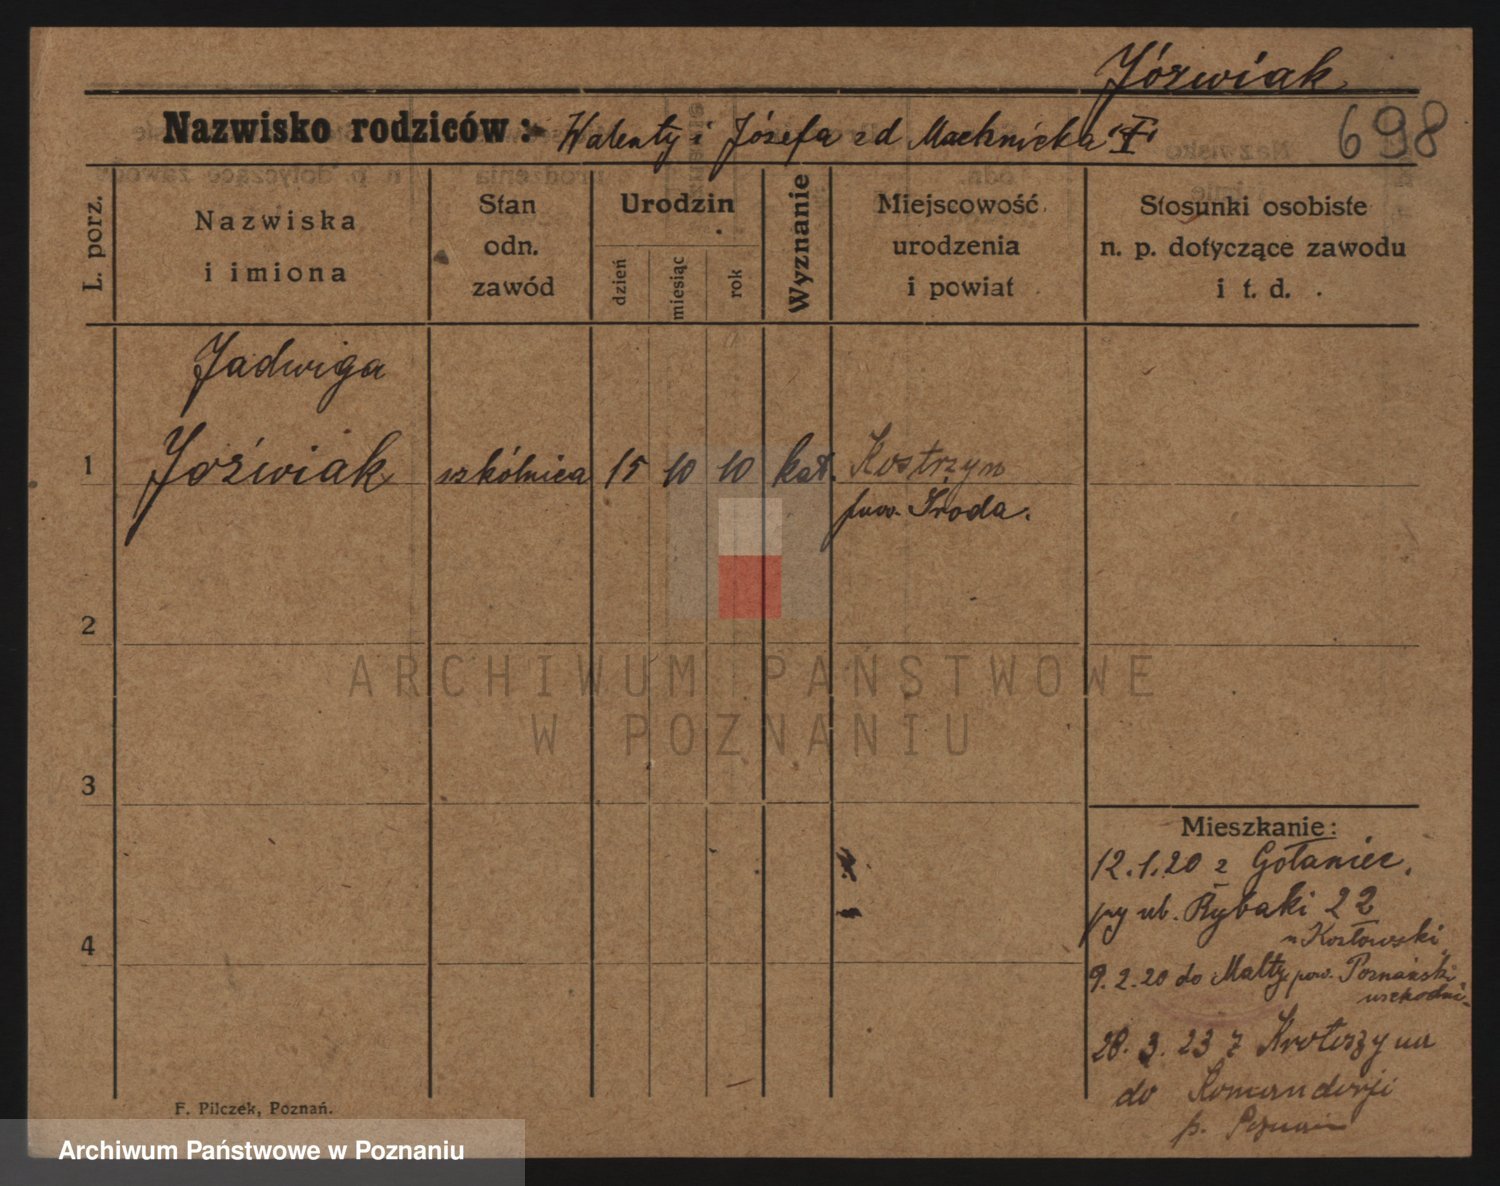 Józwiak
Nazwisko rodziców: Walenty i Józefa zd Machnicka "I"
698
L. porz.
Nazwiska
i imiona
Stan
odn.
zawód
Urodzin
dzień
miesiąc
rok
Wyznanie
Miejscowość
urodzenia
i powiat
Stosunki osobiste
n. p. dotyczące zawodu
i t. d.
Jadwiga
1 Joźwiak szkólnica 15 10 10 kat. Kostrzyn
pow. Środa.
2
ARCHIWUM PAŃSTWOWE
W POZNANIU
3
Mieszkanie:
12.1.20 z Gołaniec.
py ub. Rybaki 22
Kozłowski
4
9.2.20 do Malty pow. Poznański
wschodni-
28.3.23 z Krotoszyna
do Komandorji
p. Poznań
F. Pilczek, Poznań.
Archiwum Państwowe w Poznaniu